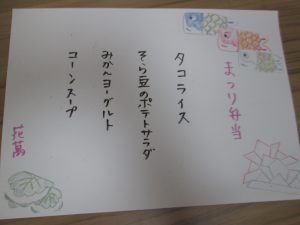 まつり弁当
タコライス
そら豆のポテトサラダ
みかんヨーグルト
コーンスープ
花萬